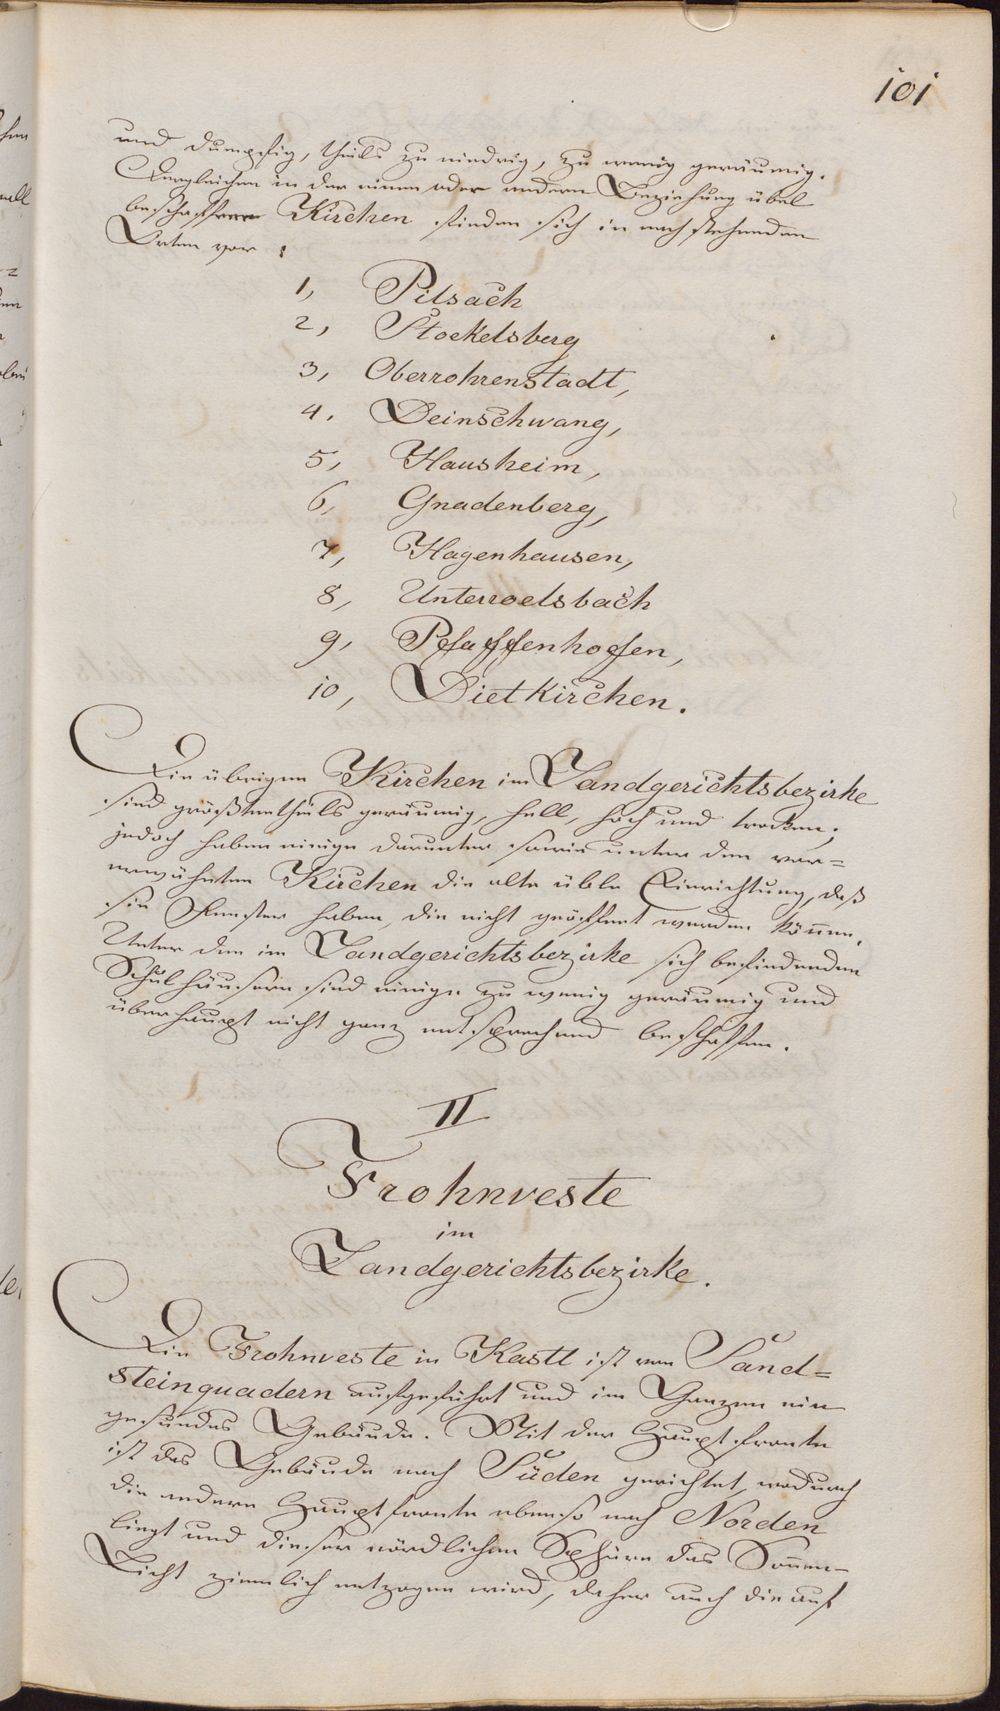 101
und dumpfig, theils zu niedrig, zu wenig geräumig.
Dergleichen in der einen oder andern Beziehung übel
beschaffene Kirchen finden sich in nachstehenden
Orten vor:
1, Pilsach
2, Stoekelsberg
3, Oberrohrenstadt,
4. Deinschwang,
5, Hausheim,
6, Gnadenberg,
7, Hagenhausen,
8, Unterroelsbach
9, Pfaffenhofen,
10, Dietkirchen.
Die übrigen Kirchen im Landgerichtsbezirke
sind größtentheils geräumig, hell, hoch und trocken;
jedoch haben einige darunter sowie unter den vor=
erwähnten Kirchen die alte üble Einrichtung, daß
sie Fenster haben, die nicht geöffnet werden können.
Unter den im Landgerichtsbezirke sich befindenden
Schulhäusern sind einige zu wenig geräumig und
überhaupt nicht ganz entsprechend beschaffen.
II
Frohnveste
im
Landgerichtsbezirke.
Die Frohnveste in Kastl ist von Sand=
steinquadern aufgeführt und im Ganzen ein
gesundes Gebäude. Mit der Hauptfronte
ist das Gebäude nach Süden gerichtet, wodurch
die andere Hauptfronte ebenso nach Norden
liegt und dieser nördlichen Sphäre das Sonnen=
Licht ziemlich entzogen wird, daher auch die auf